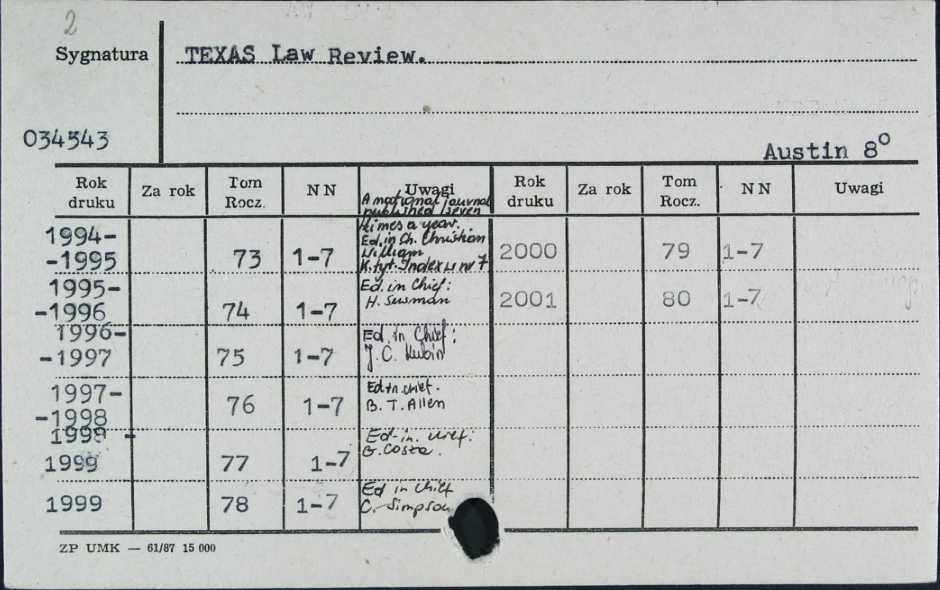 2
Sygnatura
TEXAS Law Review.
034543
Austin 8°
Rok druku
Za rok
Tom Rocz.
NN
Uwagi
Rok druku
Za rok
Tom Rocz.
NN
Uwagi
A national journal
published seven
times a year.
1994-
-1995
73
1-7
Ed. in Ch. Christian
William
K. tyt. Index w nr 7
2000
79
1-7
1995-
-1996
74
1-7
Ed. in Chief:
H. Susman
2001
80
1-7
1996-
-1997
75
1-7
Ed. in Chief:
J. C. Kubin
1997-
-1998
76
1-7
Ed in chief.
B. T. Allen
1998 -
1999
77
1-7
Ed. in. chief:
G. Costa.
1999
78
1-7
Ed in chief
C. Simpson
ZP UMK — 61/87 15 000